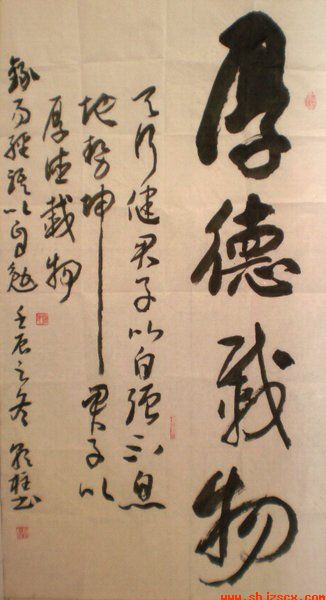 厚德载物
天行健君子以自强不息
地势坤君子以
厚德载物
录易经语以自勉 壬辰之冬
www.shjzscx.com